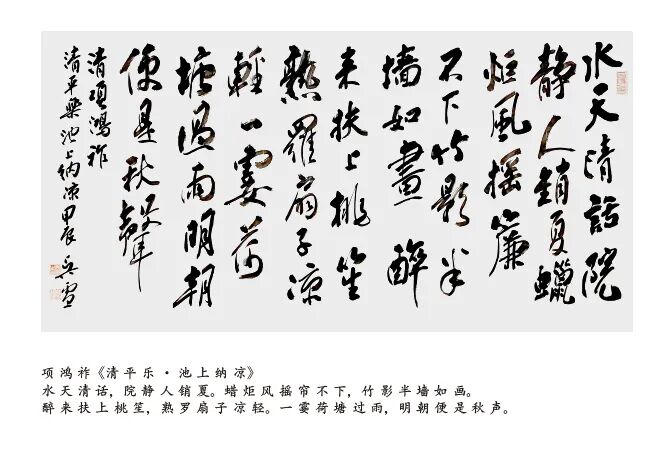 水天清話院
静人銷夏蠟
炬風摇簾
不下竹影半
墙如畫醉
来扶上桃笙
熟羅扇子凉
輕一霎荷
塘過雨明朝
便是秋聲
清項鴻祚
清平樂池上纳凉甲辰
项鸿祚《清平乐·池上纳凉》
水天清话，院静人销夏。蜡炬风摇帘不下，竹影半墙如画。
醉来扶上桃笙，熟罗扇子凉轻。一霎荷塘过雨，明朝便是秋声。